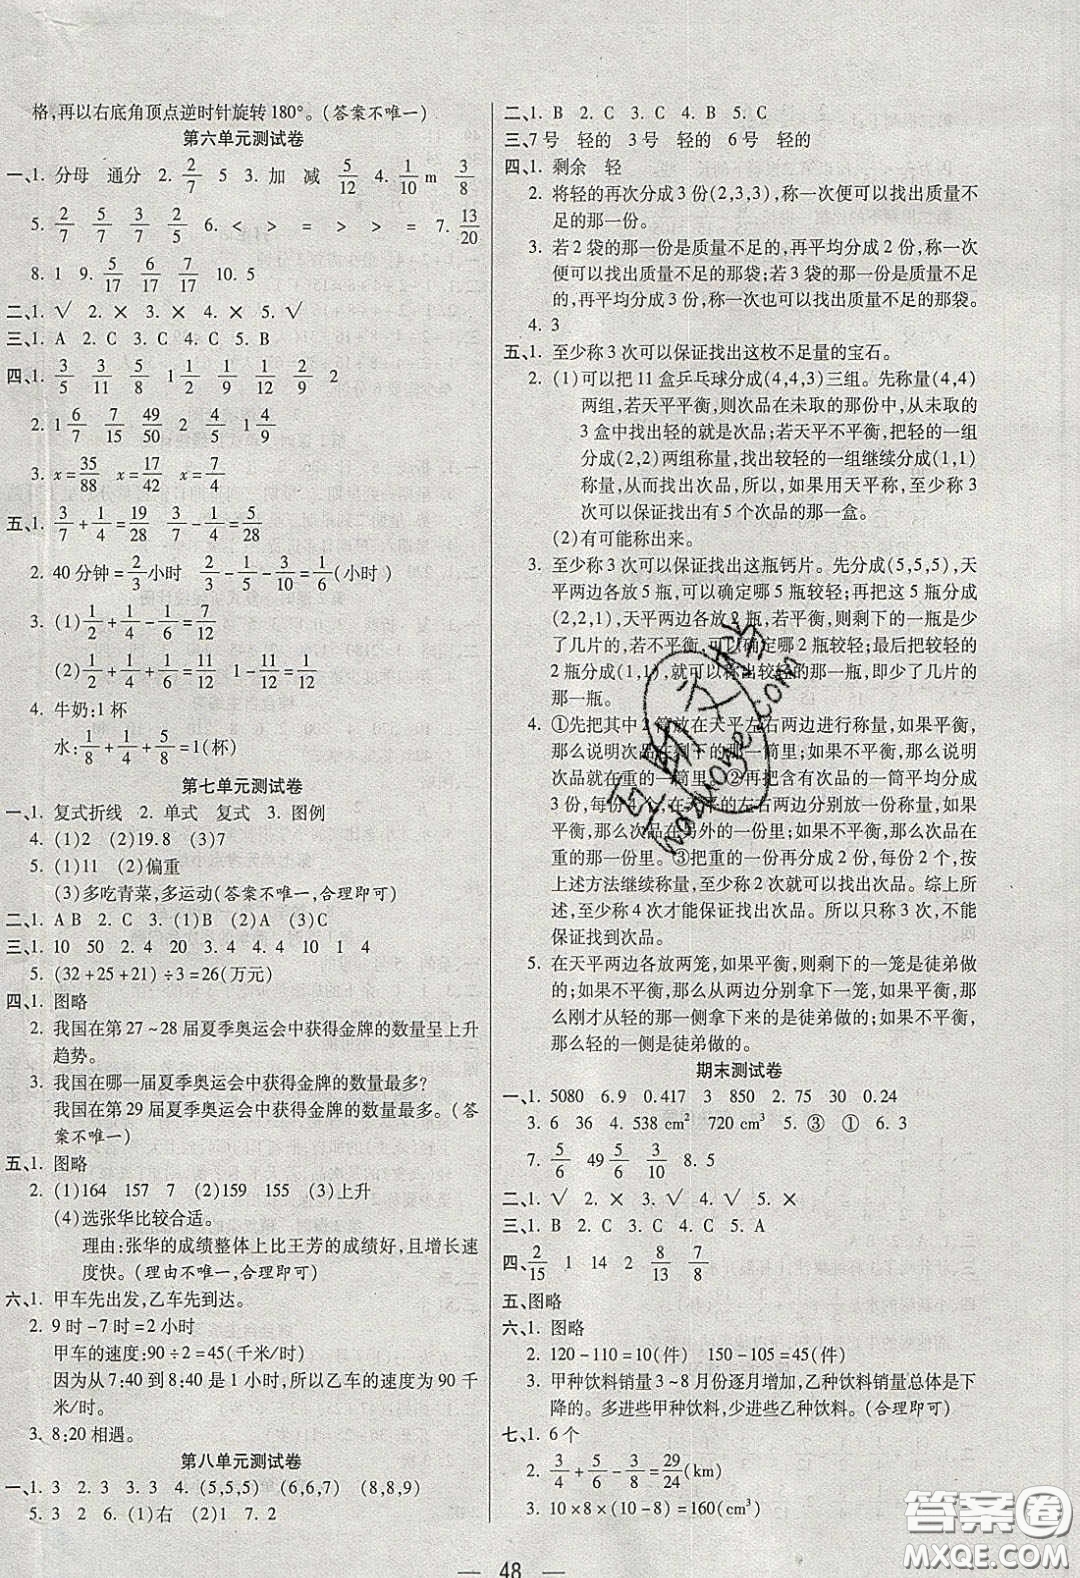 格,再以右底角顶点逆时针旋转180°。(答案不唯一)
第六单元测试卷
一、1. 分母 通分 2. 2/7 5 3. 加 减 5/12 4. 1/10 m 3/8
5. 2/7 5/7 3/7 2/5 6. < > > > = 7. 13/20
8. 1 9. 5/17 12/17 10. 5
二、1. √ 2. × 3. × 4. √ 5. √
三、1. A 2. C 3. C 4. C 5. B
四、1. 3/5 3/11 8/15 1 1/2 1/9 5/12 1/9 2
2. 1 6/7 7/15 49/50 2/9 4/9
3. x=35/88 x=17/42 x=7/4
五、1. 3/7+1/4=19/28 3/7-1/4=5/28
2. 40分钟=2/3小时 2/3-3/10=1/6(小时)
3. (1)1/2+1/4-1/6=7/12
(2)1/2+1/4+1/6=11/12 1-11/12=1/12
4. 牛奶:1杯
水:1/8+1/4+5/8=1(杯)
第七单元测试卷
一、1. 复式折线 2. 单式 复式 3. 图例
4. (1)2 (2)19.8 (3)7
5. (1)11 (2)偏重
(3)多吃青菜,多运动(答案不唯一,合理即可)
二、1. A B 2. C 3. (1)B (2)A (3)C
三、1. 10 50 2. 4 20 3. 4 4. 10 1 4
5. (32+25+21)÷3=26(万元)
四、1. 图略
2. 我国在第27~28届夏季奥运会中获得金牌的数量呈上升
趋势。
3. 我国在哪一届夏季奥运会中获得金牌的数量最多?
我国在第29届夏季奥运会中获得金牌的数量最多。(答
案不唯一)
五、1. 图略
2. (1)164 157 7 (2)159 155 (3)上升
(4)选张华比较合适。
理由:张华的成绩整体上比王芳的成绩好,且增长速
度快。(理由不唯一,合理即可)
六、1. 甲车先出发,乙车先到达。
2. 9时-7时=2小时
甲车的速度:90÷2=45(千米/时)
因为从7:40到8:40是1小时,所以乙车的速度为90千
米/时。
3. 8:20相遇。
第八单元测试卷
一、1. 3 2. 3 3. 3 4. (5,5,5) (6,6,7) (8,8,9)
5. 3 2 6. (1)右 (2)1 7. 2
二、1. B 2. C 3. C 4. B 5. C
三、7号 轻的 3号 轻的 6号 轻的
四、1. 剩余 轻
2. 将轻的再次分成3份(2,3,3),称一次便可以找出质量不
足的那一份。
3. 若2袋的那一份是质量不足的,再平均分成2份,称一次
便可以找出质量不足的那袋;若3袋的那一份是质量不足
的,再平均分成3份,称一次可以找出质量不足的那袋。
4. 3
五、1. 至少称3次可以保证找出这枚不足量的宝石。
2. (1)可以把11盒乒乓球分成(4,4,3)三组。先称量(4,4)
两组,若天平平衡,则次品在未取的那份中,从未取的
3盒中找出轻的就是次品;若天平不平衡,把轻的一组
分成(2,2)两组称量,找出较轻的一组继续分成(1,1)
称量,从而找出次品,所以,如果用天平称,至少称3
次可以保证找出有5个次品的那一盒。
(2)有可能称出来。
3. 至少称3次可以保证找出这瓶钙片。先分成(5,5,5),天
平两边各放5瓶,可以确定哪5瓶较轻;再把这5瓶分成
(2,2,1),天平两边各放2瓶,若平衡,则剩下的一瓶是少
了几片的,若不平衡,可以确定哪2瓶较轻;最后把较轻的
2瓶分成(1,1),就可以称出较轻的一瓶,即少了几片的
那一瓶。
4. ①先把其中2筒放在天平左右两边进行称量,如果平衡,
那么说明次品在剩下的一筒里;如果不平衡,那么说明次
品在重的一筒里。②再把含有次品的一筒平均分成
3份,每份4个,在天平的左右两边分别放一份称量,如果
平衡,那么次品在另外的一份里;如果不平衡,那么次品在
重的一份里。③把重的一份再分成2份,每份2个,按
上述方法继续称量,至少称2次就可以找出次品。综上所
述,至少称4次才能保证找出次品。所以只称3次,不能
保证找到次品。
5. 在天平两边各放两笼,如果平衡,则剩下的一笼是徒弟做
的;如果不平衡,从两边分别拿下一笼,如果平衡,那
么刚才从轻的一边拿下的是徒弟做的,如果不平衡,
那么轻的一侧是徒弟做的。
期末测试卷
一、1. 5080 6.9 0.417 3 850 2. 75 30 0.24
3. 6 36 4. 538 cm² 720 cm³ 5. ③ ① 6. 3
7. 5/6 49 5/6 3/10 8. 5
二、1. √ 2. × 3. √ 4. √ 5. ×
三、1. B 2. C 3. C 4. C 5. A
四、2/15 1 14 2 8/13 7/8
五、图略
六、1. 图略
2. 120-110=10(件) 150-105=45(件)
3. 甲种饮料销量3~8月份逐月增加,乙种饮料销量总体是下
降的。多进些甲种饮料,少进些乙种饮料。(合理即可)
七、1. 6个
2. 3/4+5/6-3/8=29/24(km)
3. 10×8×(10-8)=160(cm³)
48
答案圈
MXQE.COM